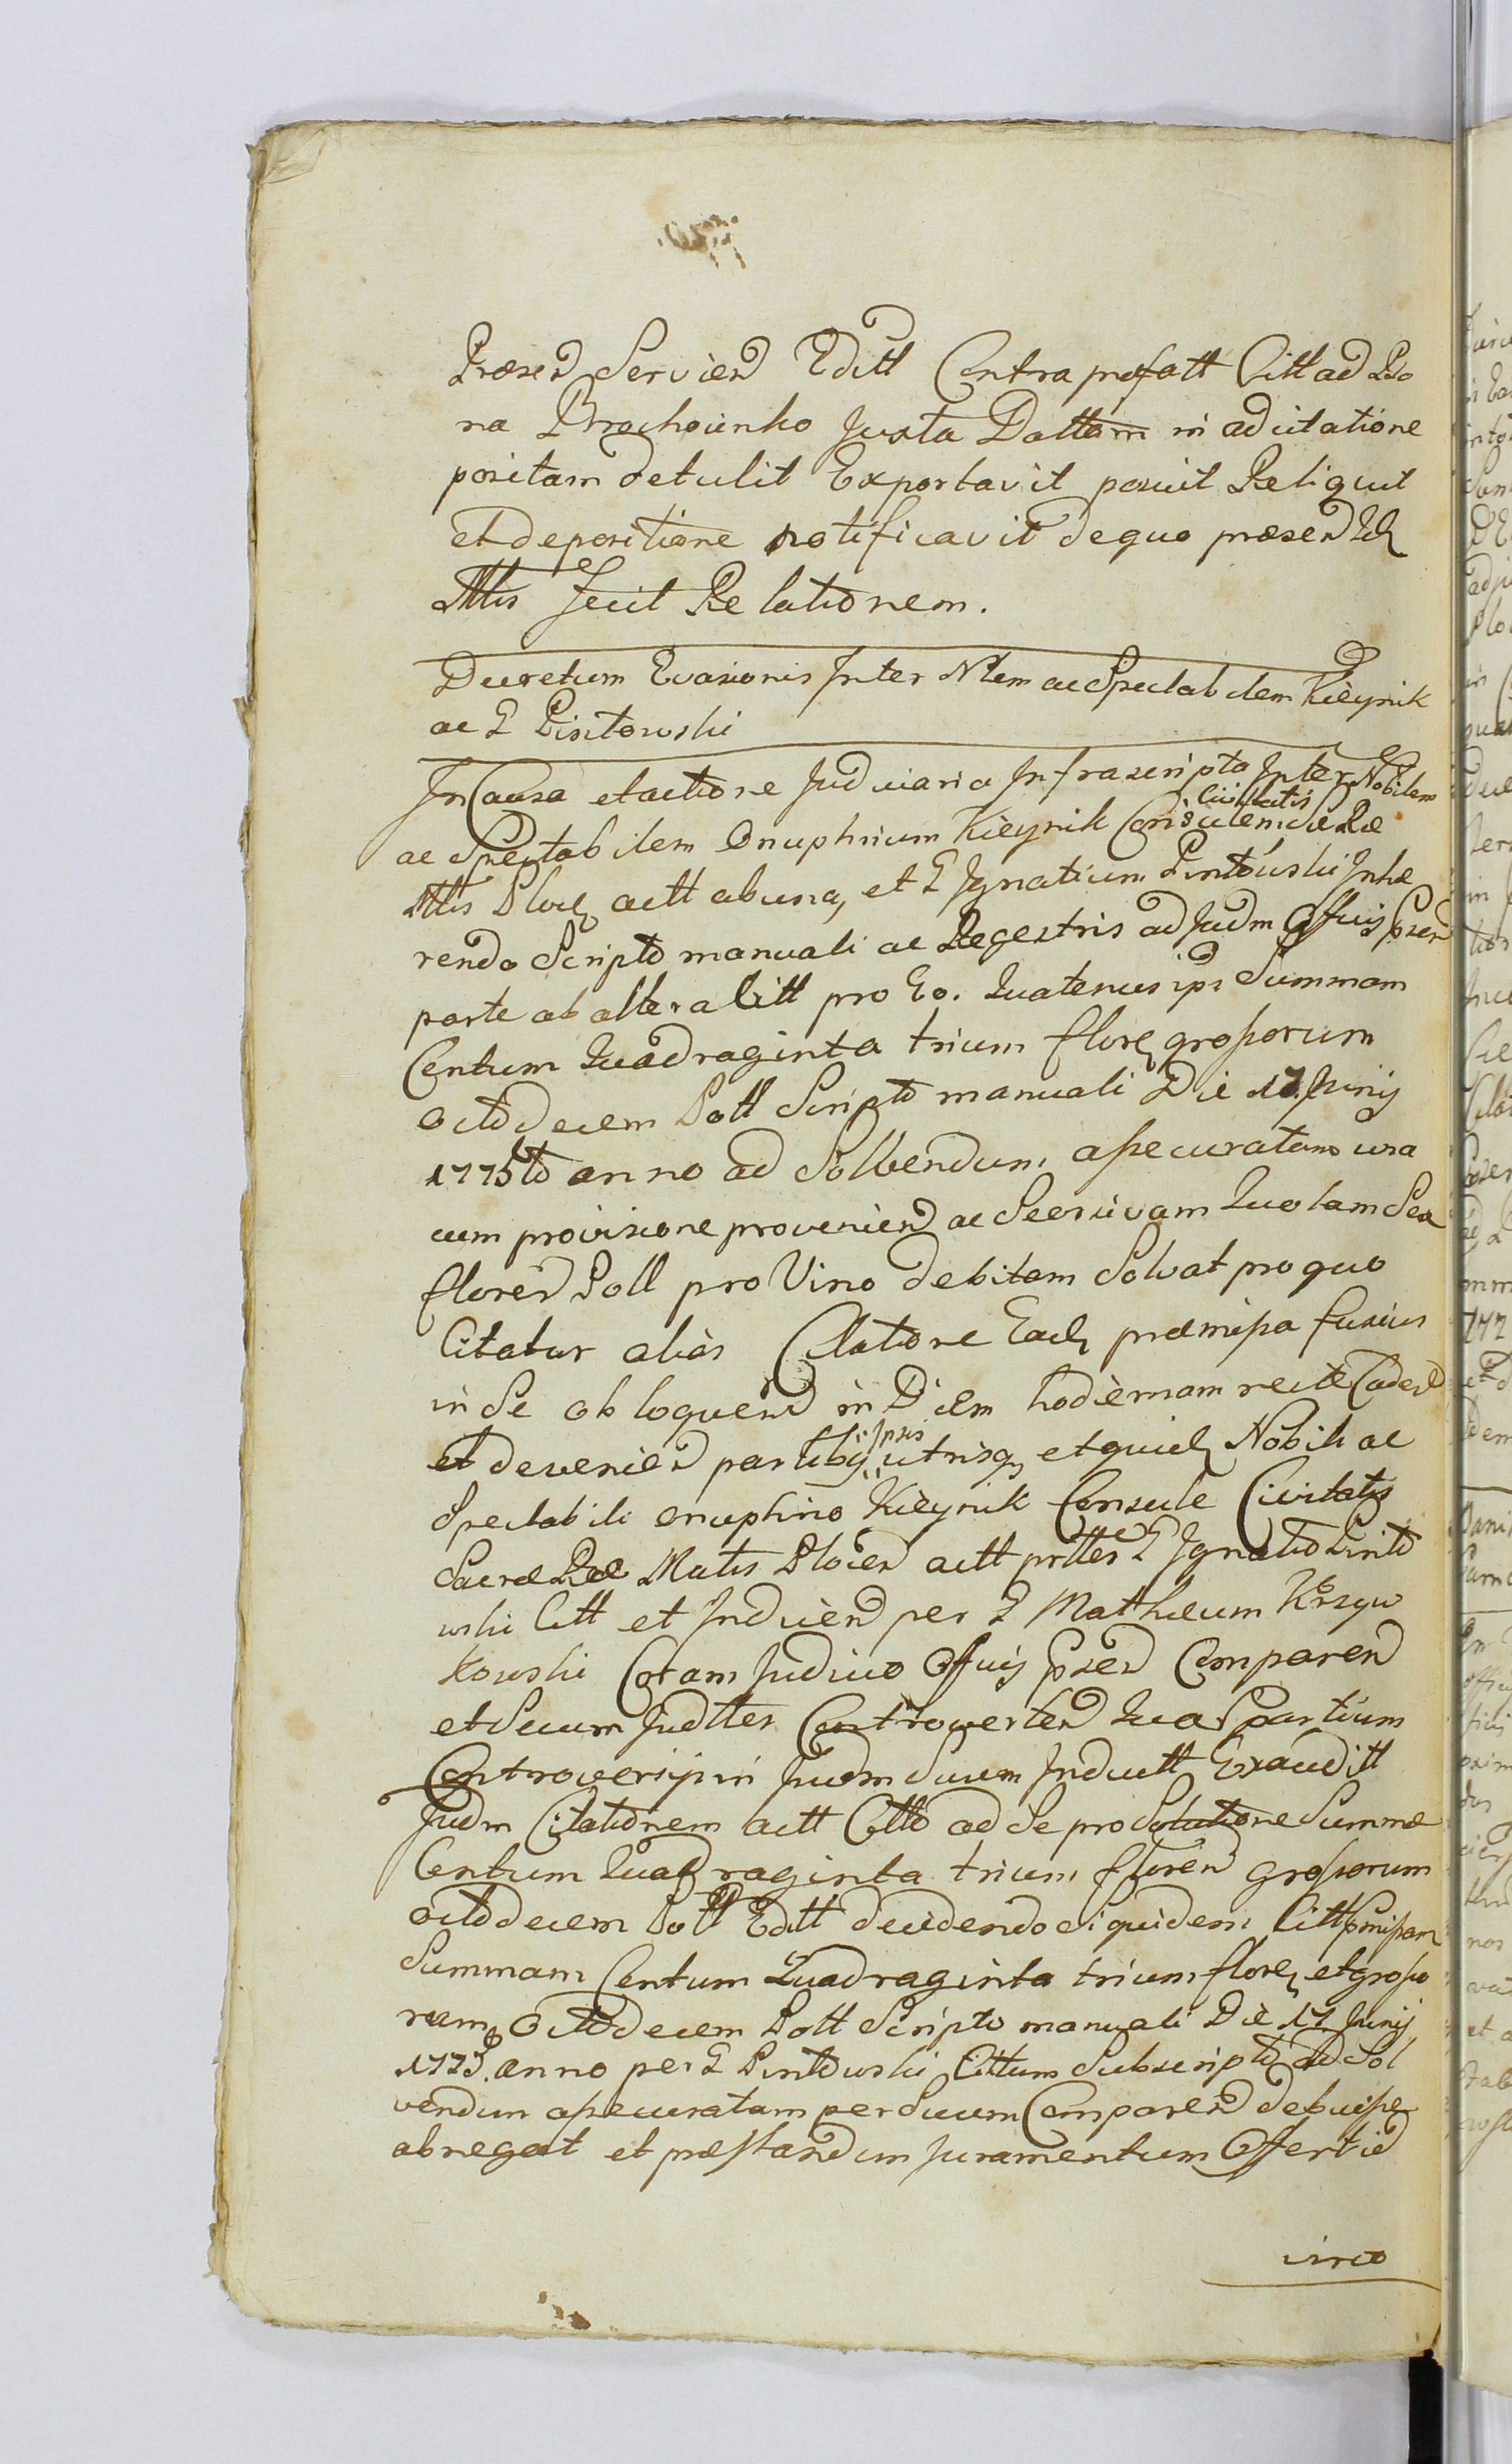 Præsen Servien Editt Contra præfatt Citt ad Bo
na Brochocinko Juxta Dattam in ad citatione
positam detulit Exportavit posuit Reliquit
et depositione notificavit de quo præsen
Mttis fecit Relationem.
Decretum Evasionis Inter Nlem ac Spectabilem Kieynik
ac G Pintowski
In Causa et actione Judiciaria Infrascripta Inter Nobilem
ac Spectabilem Onuphrium Kieynik Consulem Civitatis SæRæ
Mttis Ploc actt ab una, et G Ignatium Pintowski Inhæ
rendo Scripto manuali ac Regestris ad Judm Officij Præsen
parte ab altera Citt pro Eo. Quatenus ipsi Summam
Centum Quadraginta trium flore grossorum
octodecem Poll Scripto manuali Die 17 Junij
1775to anno ad Solvendum assecuratam una
cum provisione provenien ac Seorsivam Quotam Sex
floren Poll pro Vino debitam Solvat pro quo
Citatur alias Citatione Ead præmissa fusius
in Se obloquen in Diem hodiernam recte Caden
et devenien partibg ipsis utrisq et quid Nobili ac
Spectabili onuphrio Kieynik Consule Civitatis
Sacræ Ræ Mattis Plocen actt prttes G Ignatio Pinto
wski Citt et Inducien per G Mathæum Krzyw
kowski Coram Judicio Officij Præsen Comparen
et Secum Judtter Controverten Quas partium
Controversijs in Judm Suum Inductt Exauditt
Judm Citationem actt Citto ad Se pro Solutione Summæ
Centum Quadraginta trium floren grossorum
octodecem Poll Editt decidendo Siquidem Citt Pmissam
Summam Centum Quadraginta trium flore et grosso
rum Octodecem Poll Scripto manuali Die 17 Junij
1775. anno per G Pintowski Cittum Subscripto ad Sol
vendum assecuratam per Suum Comparen debuisse
abnegat et præstandum Juramentum Offert id
circo